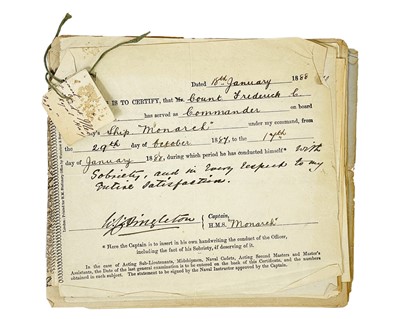 Dated 18th January 1888
IS TO CERTIFY, that Mr. Count Frederick C.
has served as Commander on board
Ship "Monarch" under my command, from
the 29th day of October 1887, to the 17th
day of January 1888, during which period he has conducted himself* with
Sobriety, and in every respect to my
Entire Satisfaction.
Singleton { Captain,
H.M.S. "Monarch"
* Here the Captain is to insert in his own handwriting the conduct of the Officer,
including the fact of his Sobriety, if deserving of it.
In the case of Acting Sub-Lieutenants, Midshipmen, Naval Cadets, Acting Second Masters and Master's
Assistants, the Date of the last general examination is to be entered on the back of this Certificate, and the numbers
obtained in each subject. The statement to be signed by the Naval Instructor and approved by the Captain.